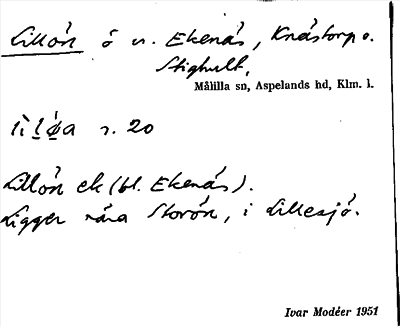 Lillön ö v. Ekenäs, Knästorp o.
Stighult,
Målilla sn, Aspelands hd, Klm. l.
s. 20
Lillön ek (bl. Ekenäs).
Ligger nära Storön, i Lillesjö.
Ivar Modéer 1951